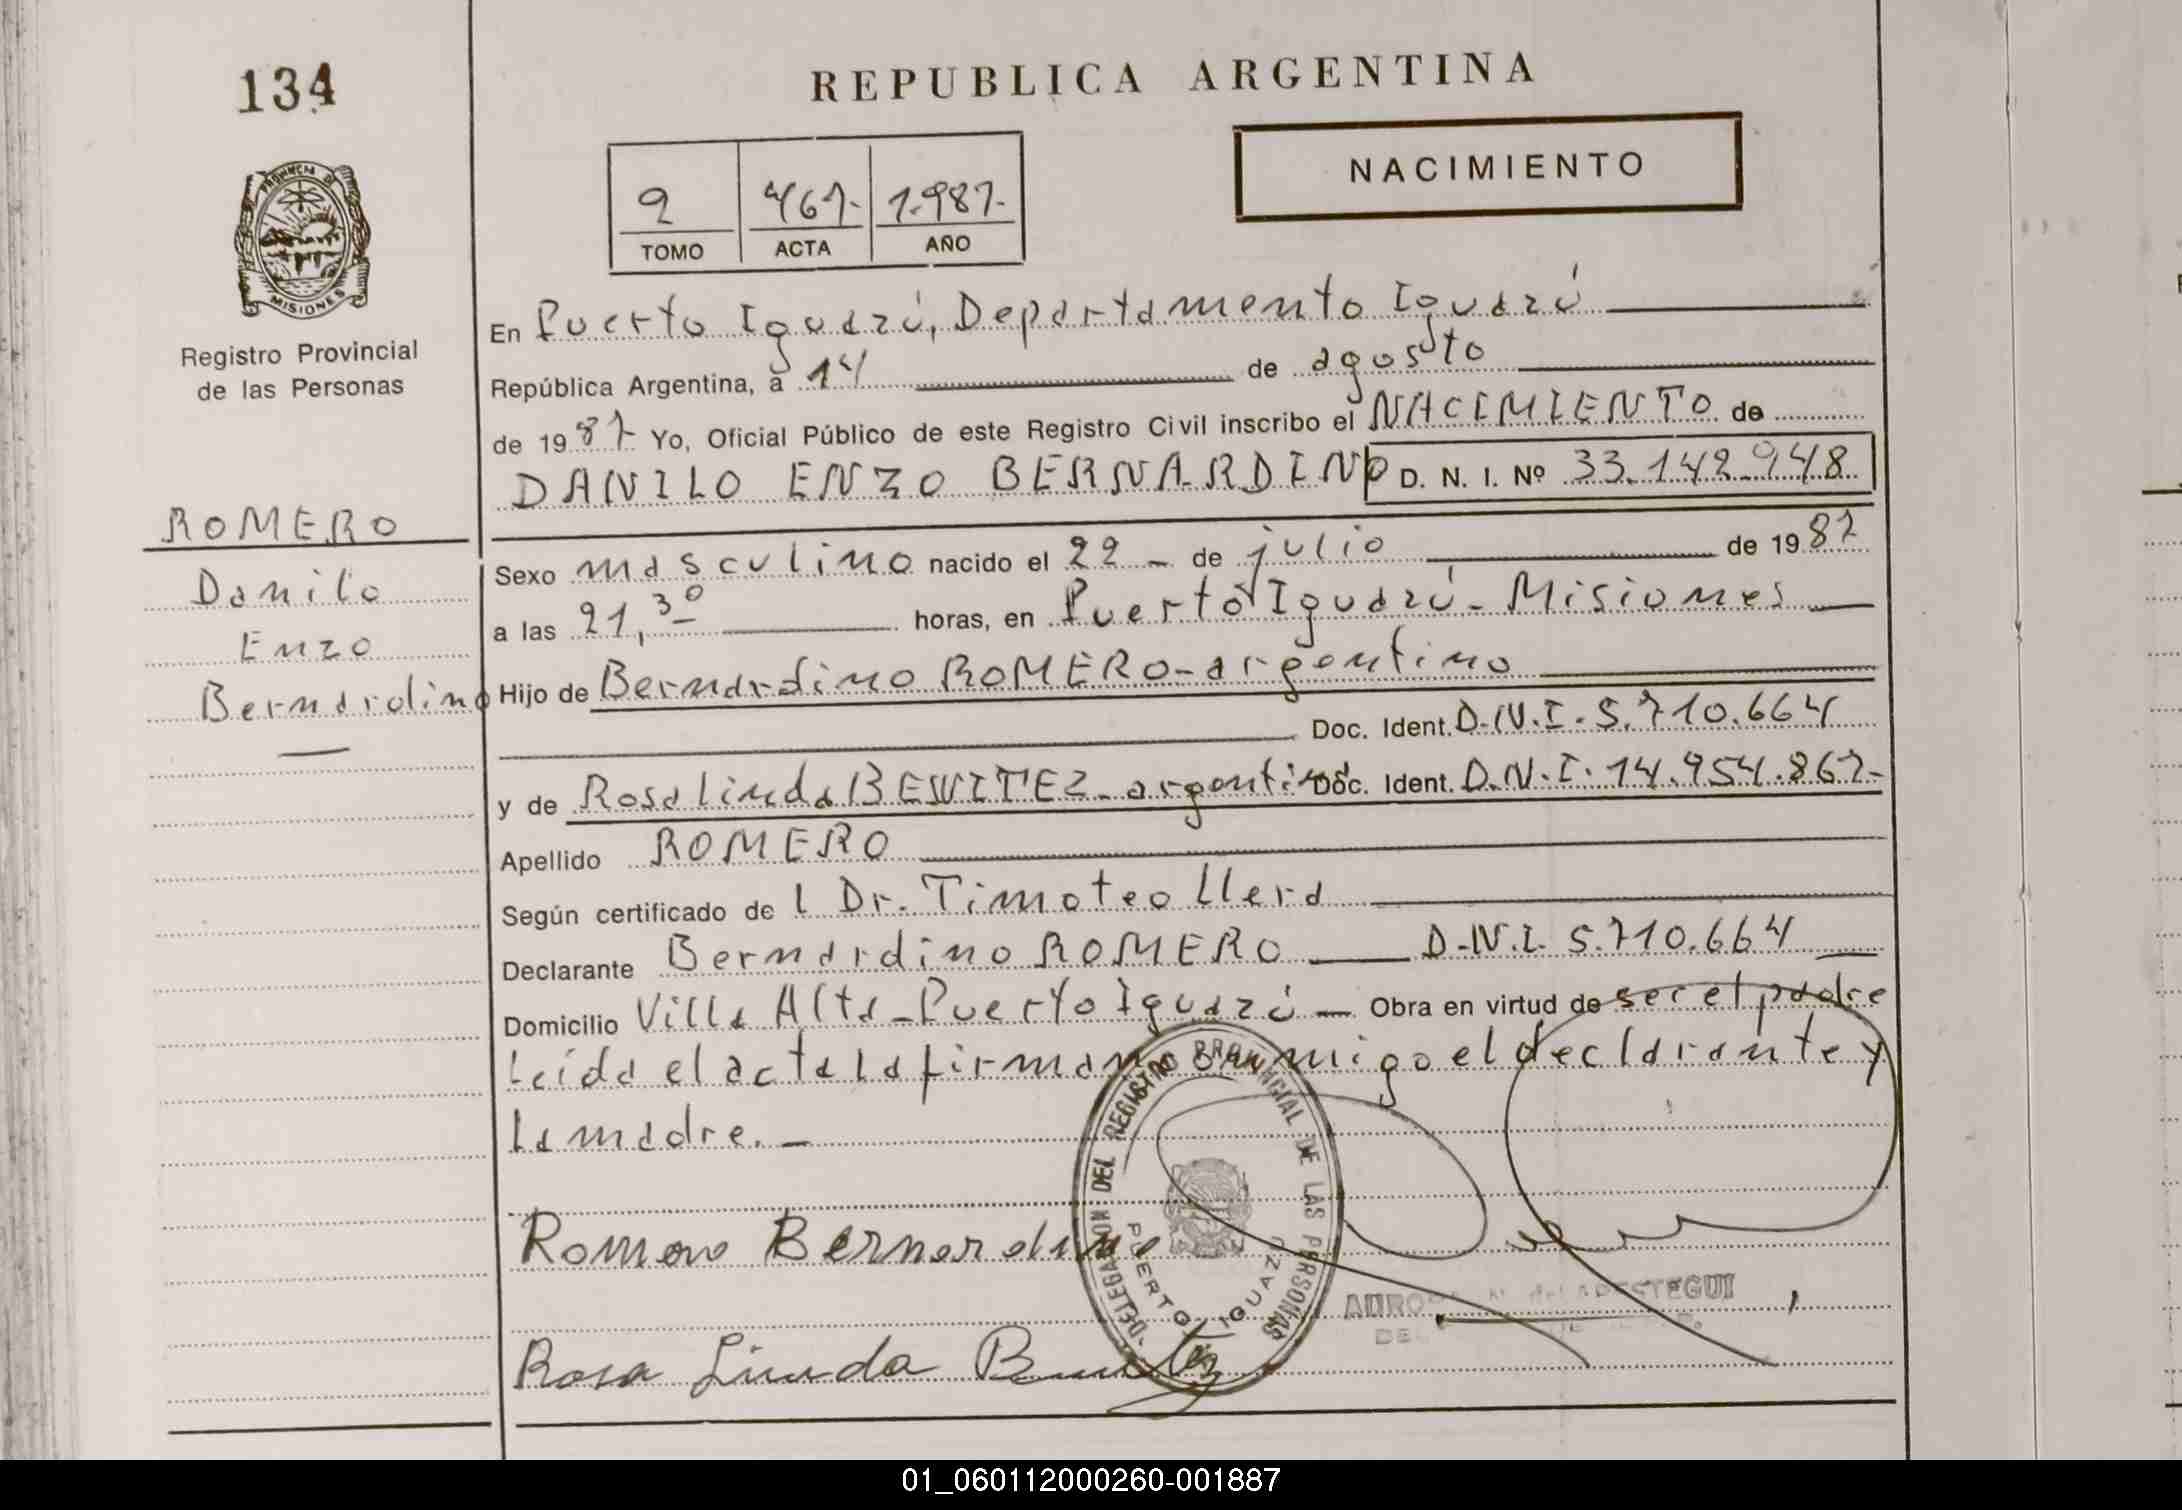 134
REPUBLICA ARGENTINA
NACIMIENTO
2 467- 1.987-
TOMO ACTA AÑO
PROVINCIA DE
MISIONES
Registro Provincial
de las Personas
En Puerto Iguazú, Departamento Iguazú
República Argentina, a 14 de agosto
de 1987 Yo, Oficial Público de este Registro Civil inscribo el NACIMIENTO de
DANILO ENZO BERNARDINO D. N. I. Nº 33.142.948
ROMERO
Danilo
Enzo
Bernardino
Sexo masculino nacido el 22 - de julio de 1987
a las 21,30 horas, en Puerto Iguazú - Misiones
Hijo de Bernardino ROMERO - argentino
Doc. Ident. D.N.I. 5.710.664
y de Rosalinda BENITEZ - argentina Doc. Ident. D.N.I. 14.954.867-
Apellido ROMERO
Según certificado de l Dr. Timoteo Llera
Declarante Bernardino ROMERO D.N.I. 5.710.664
Domicilio Villa Alta - Puerto Iguazú - Obra en virtud de ser el padre
Leída el acta la firman conmigo el declarante y
la madre. -
DELEGACION DEL REGISTRO PROVINCIAL DE LAS PERSONAS
PUERTO IGUAZU
Romero Bernardino
Rosa Linda Benitez
01_060112000260-001887